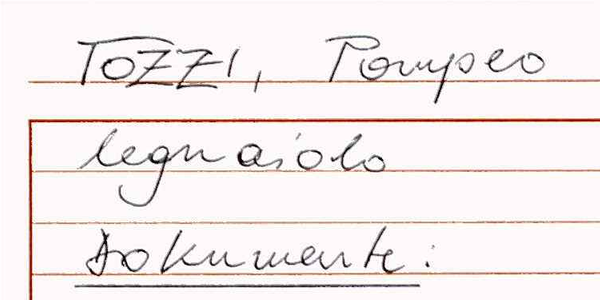 TOZZI, Pompeo
legnaiolo
Dokumente: